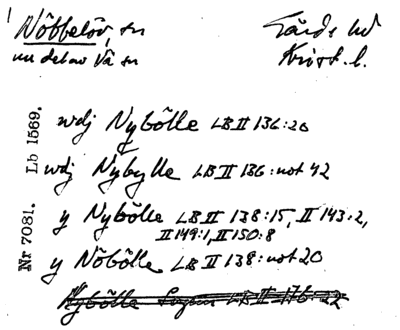 Nöbbelöv, sn
nu del av Vä sn
Gärds hd
Krist. l.
Lb 1569.
Nr 7081.
wdj Nybölle LB II 136:20
wdj Nybylle LB II 136: not 42
y Nybölle LB II 138:15, II 143:2,
II 149:1, II 150:8
y Nöbölle LB II 138: not 20
Nybölle LB II 176:22